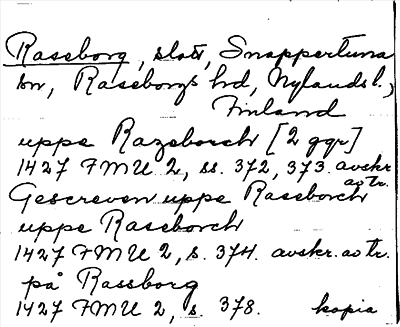 Raseborg, slott, Snappertuna
sn, Raseborgs hd, Nylands l.,
Finland
uppe Razeborch [2 ggr]
1427 FMU 2, ss. 372, 373. avskr. av tr.
Gescreven uppe Raseborch
uppe Raseborch
1427 FMU 2, s. 374. avskr. av tr.
på Rassborg
1427 FMU 2, s. 378. kopia